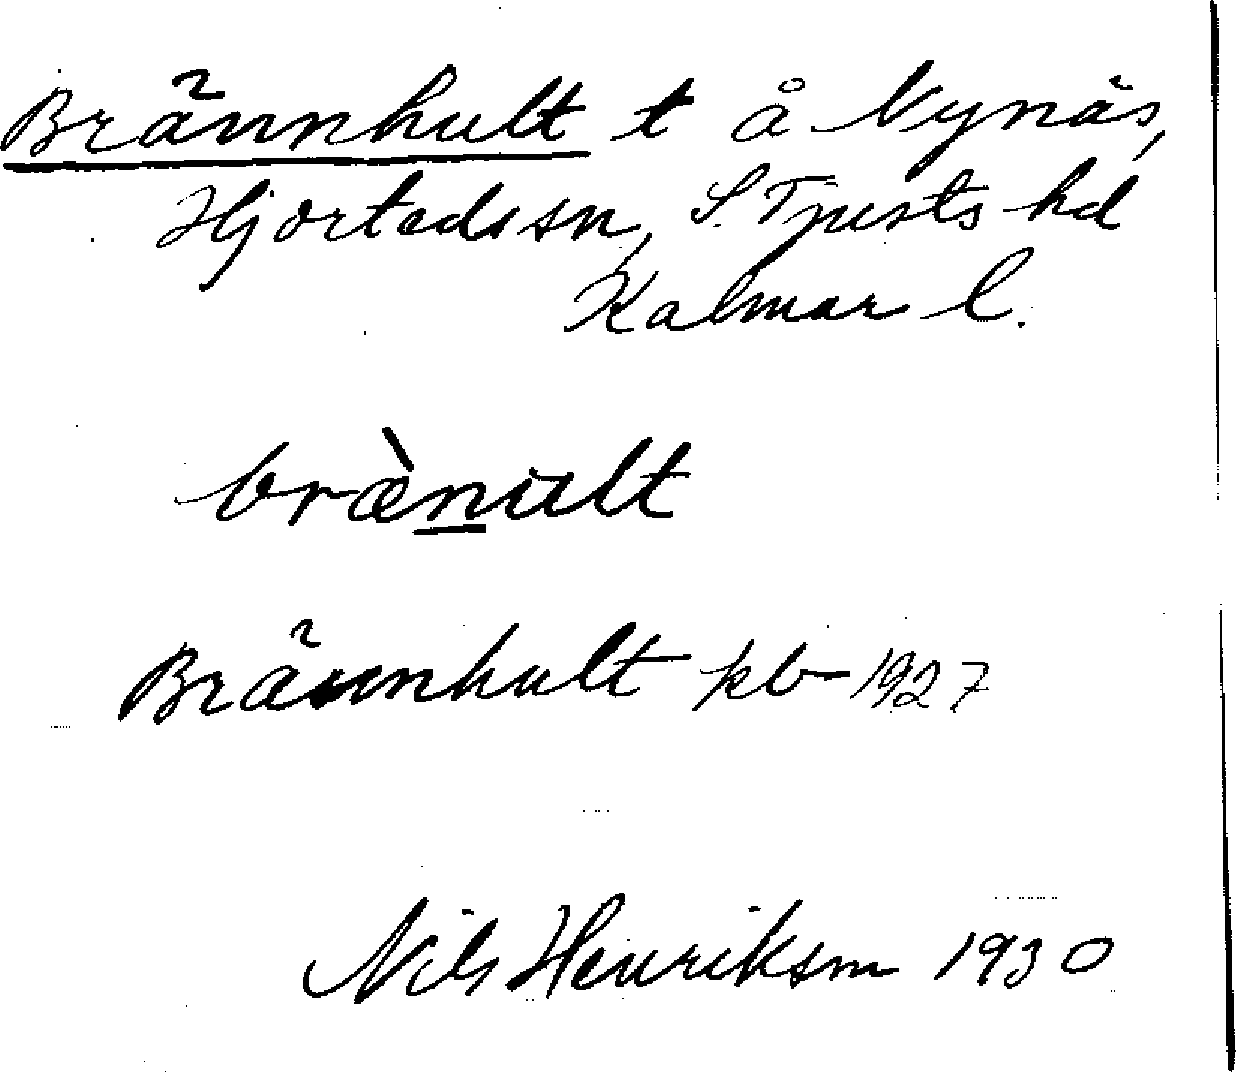 Brännhult t å Nynäs,
Hjorteds sn, S. Tjusts hd
Kalmar l.
brænult
Brännhult kb 1927
Nils Henriksm 1930